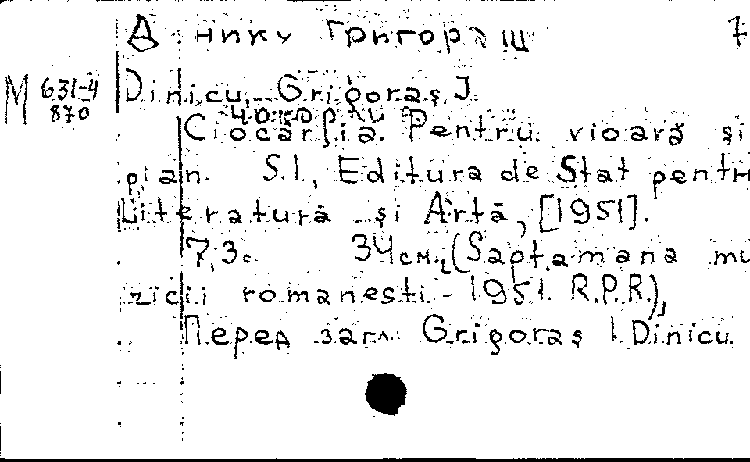 Динику Григораш 7
М 631-4
870
Dinicu, Grigoraş I.
Ciocârlia. Pentru vioară şi
pian. S.l., Editura de Stat pentru
Literatură şi Artă, [1951].
7,3с. 34см., (Săpt.amana mu
zicii romanesti - 1951. R.P.R.),
Перед загл. Grigoraş I Dinicu.